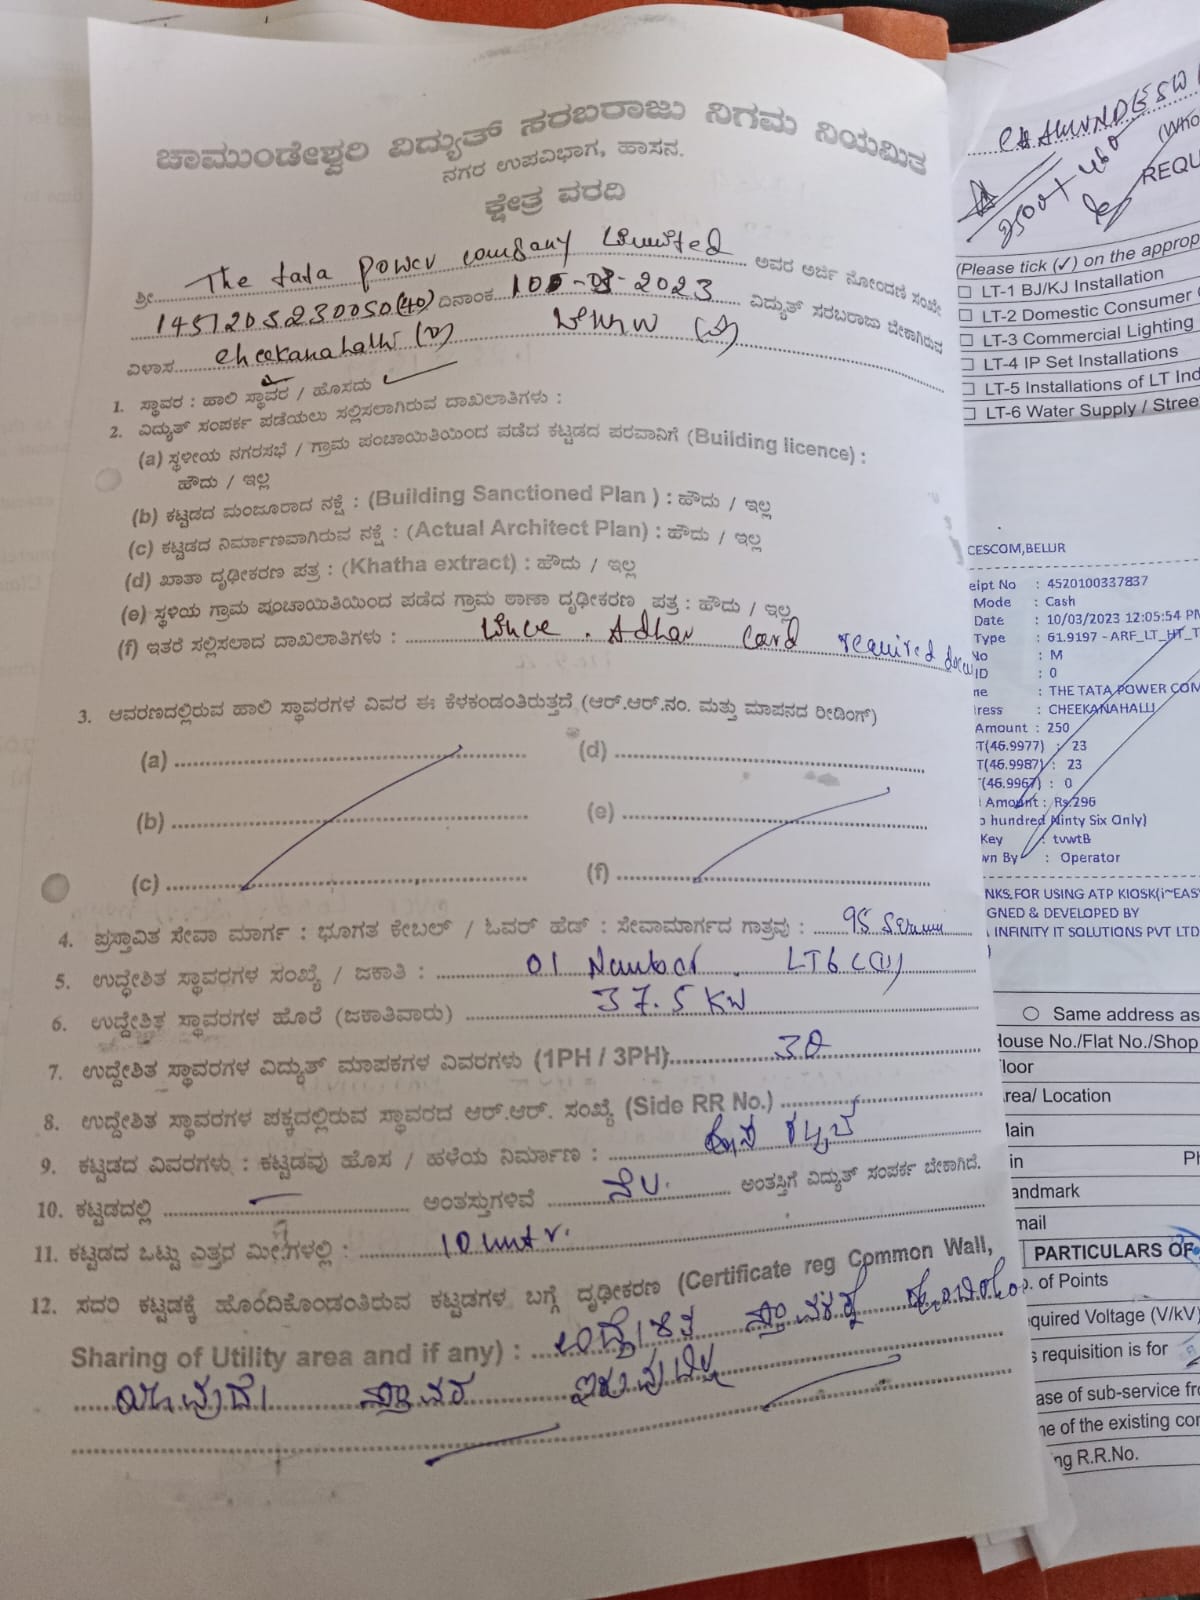 ಚಾಮುಂಡೇಶ್ವರಿ ವಿದ್ಯುತ್ ಸರಬರಾಜು ನಿಗಮ ನಿಯಮಿತ
ನಗರ ಉಪವಿಭಾಗ, ಹಾಸನ.
ಕ್ಷೇತ್ರ ವರದಿ
ಶ್ರೀ The tata power company Limited ಅವರ ಅರ್ಜಿ ನೋಂದಣಿ ಸಂಖ್ಯೆ
ದಿನಾಂಕ 2023 ವಿದ್ಯುತ್ ಸರಬರಾಜು ಬೇಕಾಗಿರುವ
ವಿಳಾಸ cheekanahalli
1. ಸ್ಥಾವರ : ಹಾಲಿ ಸ್ಥಾವರ / ಹೊಸದು
2. ವಿದ್ಯುತ್ ಸಂಪರ್ಕ ಪಡೆಯಲು ಸಲ್ಲಿಸಲಾಗಿರುವ ದಾಖಲಾತಿಗಳು :
(a) ಸ್ಥಳೀಯ ನಗರಸಭೆ / ಗ್ರಾಮ ಪಂಚಾಯಿತಿಯಿಂದ ಪಡೆದ ಕಟ್ಟಡದ ಪರವಾನಿಗೆ (Building licence) :
ಹೌದು / ಇಲ್ಲ
(b) ಕಟ್ಟಡದ ಮಂಜೂರಾದ ನಕ್ಷೆ : (Building Sanctioned Plan ) : ಹೌದು / ಇಲ್ಲ
(c) ಕಟ್ಟಡದ ನಿರ್ಮಾಣವಾಗಿರುವ ನಕ್ಷೆ : (Actual Architect Plan) : ಹೌದು / ಇಲ್ಲ
(d) ಖಾತಾ ದೃಢೀಕರಣ ಪತ್ರ : (Khatha extract) : ಹೌದು / ಇಲ್ಲ
(e) ಸ್ಥಳಿಯ ಗ್ರಾಮ ಪಂಚಾಯಿತಿಯಿಂದ ಪಡೆದ ಗ್ರಾಮ ಠಾಣಾ ದೃಢೀಕರಣ ಪತ್ರ : ಹೌದು / ಇಲ್ಲ
(f) ಇತರೆ ಸಲ್ಲಿಸಲಾದ ದಾಖಲಾತಿಗಳು : Adhar card required
3. ಆವರಣದಲ್ಲಿರುವ ಹಾಲಿ ಸ್ಥಾವರಗಳ ವಿವರ ಈ ಕೆಳಕಂಡಂತಿರುತ್ತದೆ (ಆರ್.ಆರ್.ನಂ. ಮತ್ತು ಮಾಪನದ ರೀಡಿಂಗ್)
(a) (d)
(b) (e)
(c) (f)
4. ಪ್ರಸ್ತಾವಿತ ಸೇವಾ ಮಾರ್ಗ : ಭೂಗತ ಕೇಬಲ್ / ಓವರ್ ಹೆಡ್ : ಸೇವಾಮಾರ್ಗದ ಗಾತ್ರವು : 95
5. ಉದ್ಧೇಶಿತ ಸ್ಥಾವರಗಳ ಸಂಖ್ಯೆ / ಜಕಾತಿ : 01 Number LT6
6. ಉದ್ದೇಶಿತ ಸ್ಥಾವರಗಳ ಹೊರೆ (ಜಕಾತಿವಾರು) 37.5 KW
7. ಉದ್ದೇಶಿತ ಸ್ಥಾವರಗಳ ವಿದ್ಯುತ್ ಮಾಪಕಗಳ ವಿವರಗಳು (1PH / 3PH) 3θ
8. ಉದ್ದೇಶಿತ ಸ್ಥಾವರಗಳ ಪಕ್ಕದಲ್ಲಿರುವ ಸ್ಥಾವರದ ಆರ್.ಆರ್. ಸಂಖ್ಯೆ (Side RR No.)
9. ಕಟ್ಟಡದ ವಿವರಗಳು : ಕಟ್ಟಡವು ಹೊಸ / ಹಳೆಯ ನಿರ್ಮಾಣ :
10. ಕಟ್ಟಡದಲ್ಲಿ — ಅಂತಸ್ತುಗಳಿವೆ ನೆಲ ಅಂತಸ್ತಿಗೆ ವಿದ್ಯುತ್ ಸಂಪರ್ಕ ಬೇಕಾಗಿದೆ.
11. ಕಟ್ಟಡದ ಒಟ್ಟು ಎತ್ತರ ಮೀ಼ಗಳಲ್ಲಿ : 10 mtr.
12. ಸದರಿ ಕಟ್ಟಡಕ್ಕೆ ಹೊಂದಿಕೊಂಡಂತಿರುವ ಕಟ್ಟಡಗಳ ಬಗ್ಗೆ ದೃಢೀಕರಣ (Certificate reg Common Wall,
Sharing of Utility area and if any) : ಉದ್ದೇಶಿತ ಸ್ಥಾವರಕ್ಕೆ
ಯಾವುದೇ ಸ್ಥಾವರ ಇರುವುದಿಲ್ಲ
CHAMUNDESW
(Who
2500 + 460
REQU
(Please tick (✓) on the approp
LT-1 BJ/KJ Installation
LT-2 Domestic Consumer
LT-3 Commercial Lighting
LT-4 IP Set Installations
LT-5 Installations of LT Ind
LT-6 Water Supply / Stree
CESCOM,BELUR
eipt No : 4520100337837
Mode : Cash
Date : 10/03/2023 12:05:54 PM
Type : 61.9197 - ARF_LT_HT_T
No : M
ID : 0
me : THE TATA POWER COM
dress : CHEEKANAHALLI
Amount : 250
T(46.9977) : 23
T(46.9987) : 23
(46.9967) : 0
Amount : Rs.296
o hundred Ninty Six Only)
Key : tvwtB
wn By : Operator
NKS FOR USING ATP KIOSK(i~EAS
GNED & DEVELOPED BY
INFINITY IT SOLUTIONS PVT LTD
Same address as
House No./Flat No./Shop
loor
rea/ Location
lain
in Ph
andmark
mail
PARTICULARS OF
o. of Points
quired Voltage (V/kV)
s requisition is for
ase of sub-service fr
ne of the existing cor
ng R.R.No.